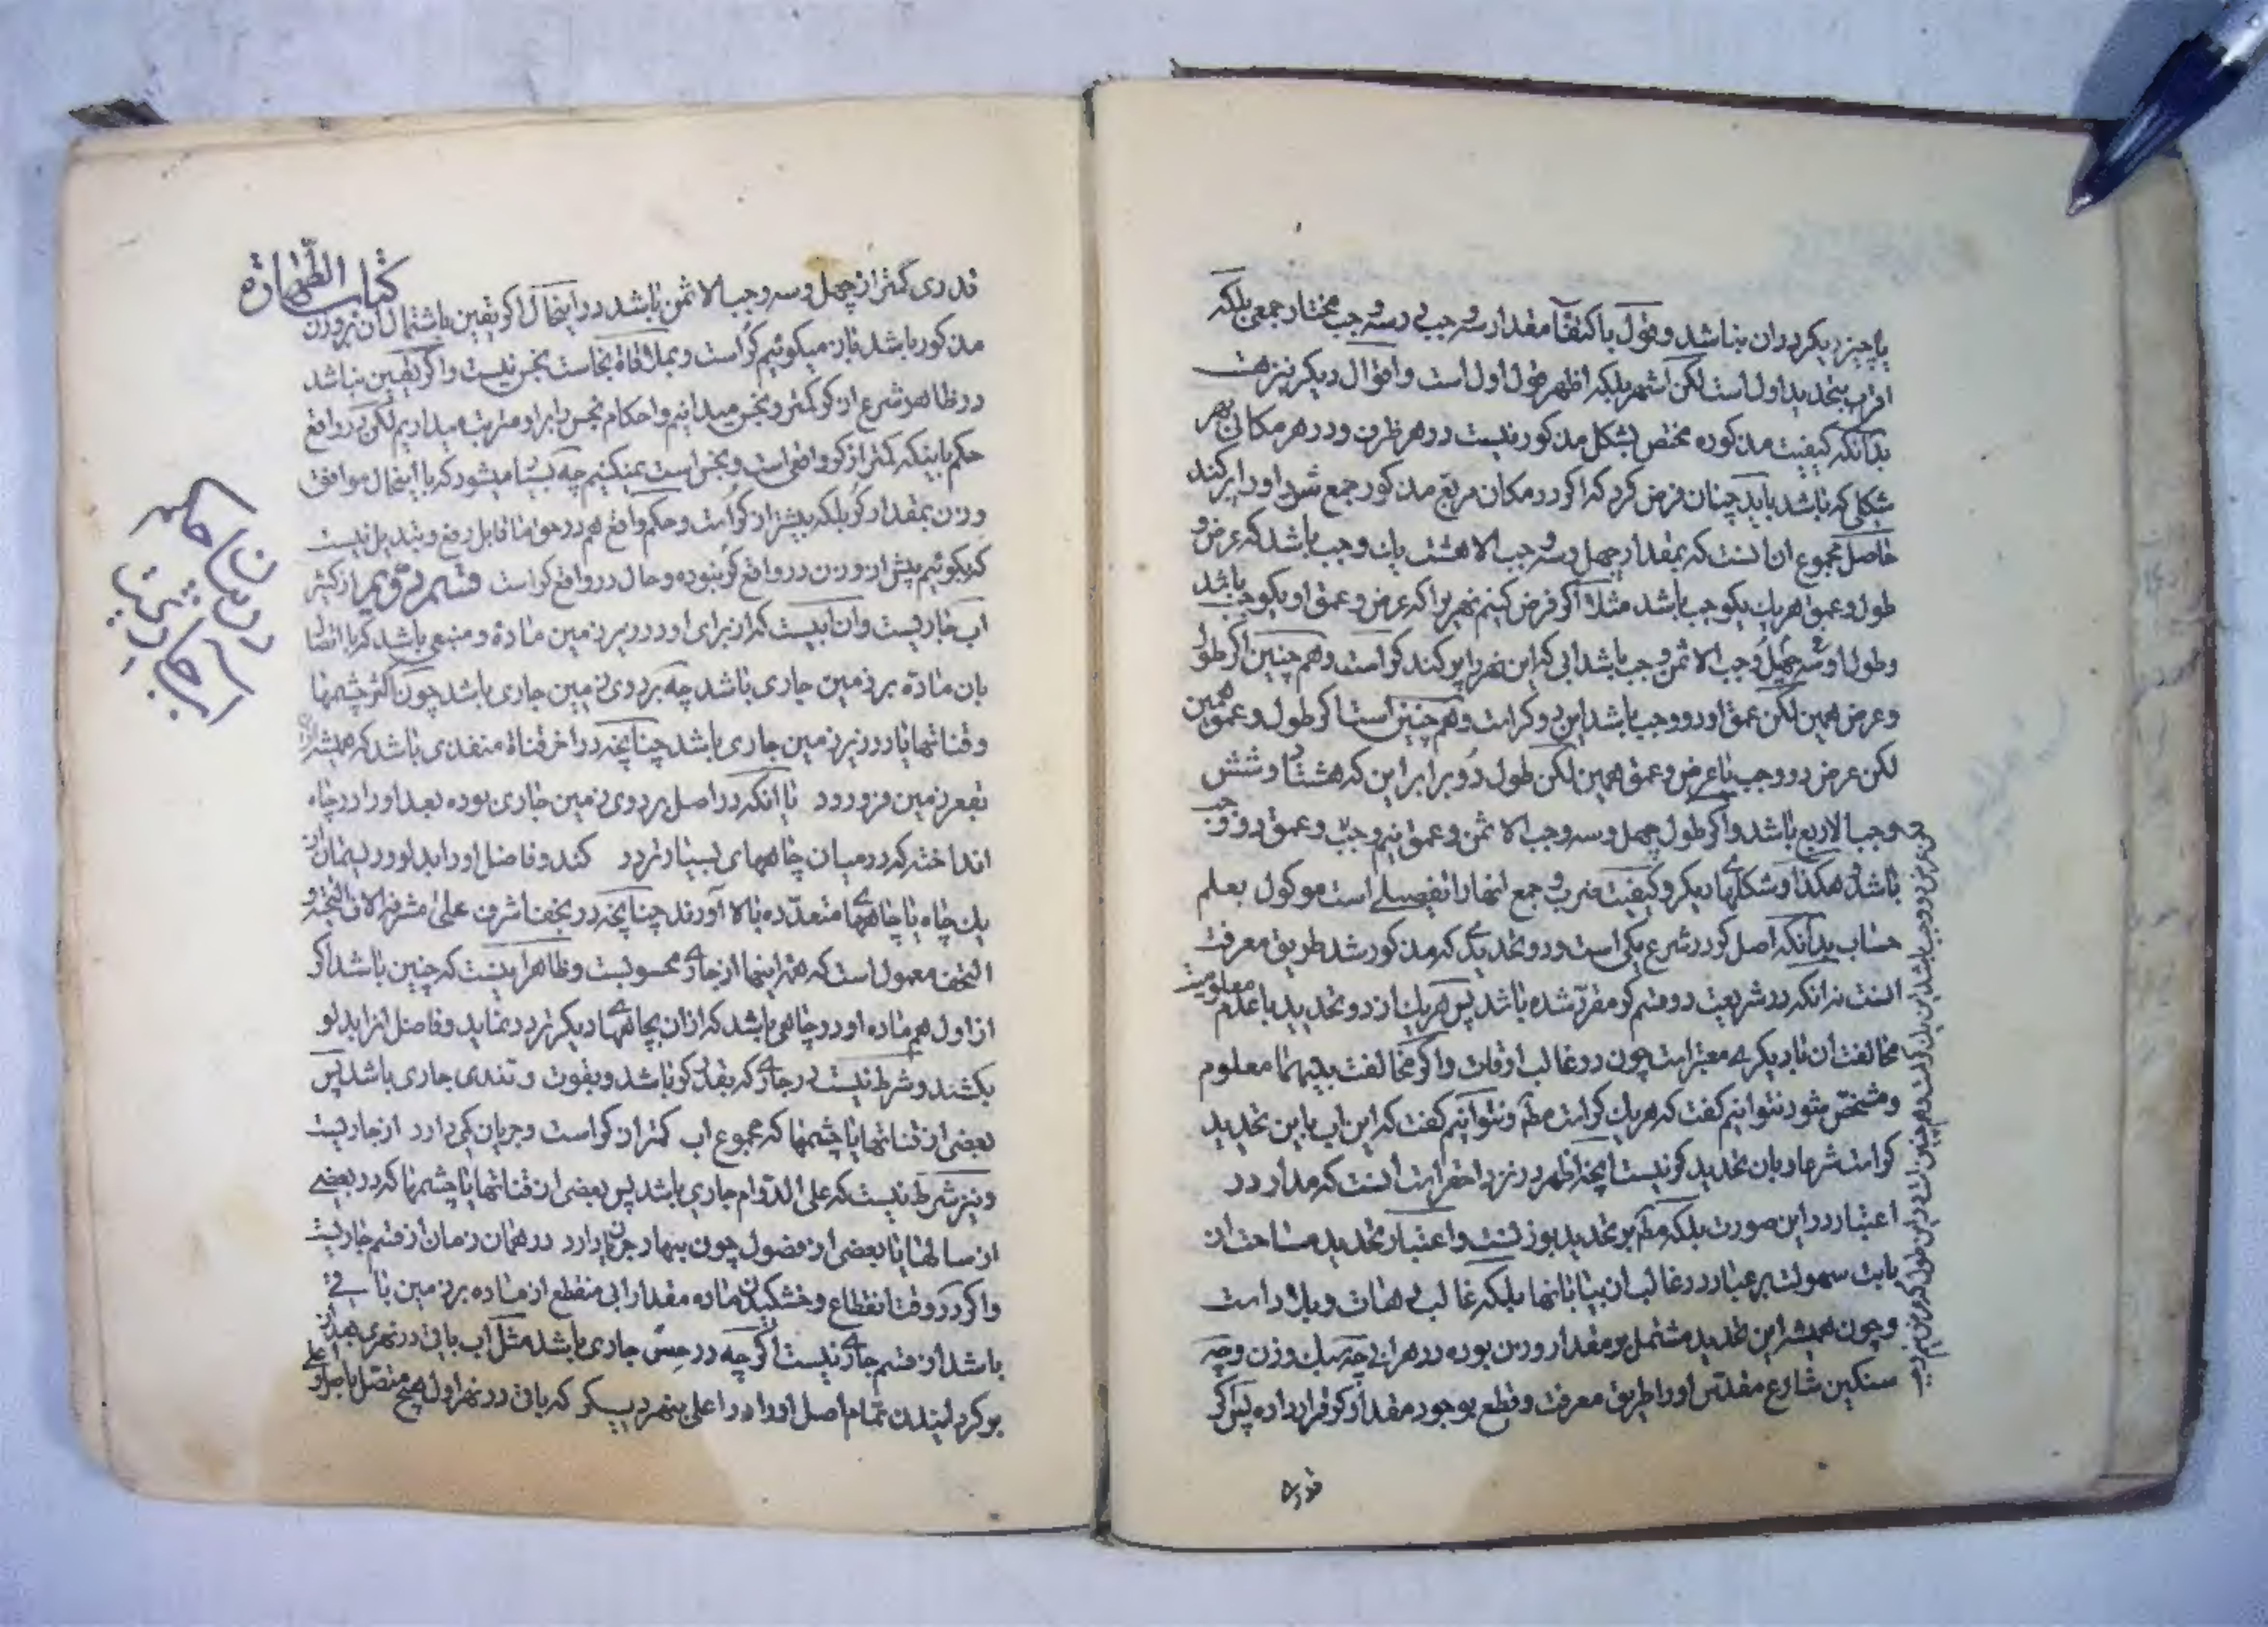 یا چیز دیکر در ان نباشد و قول باکتفآء مقدار سه وجب در سه وجب مختار جمعی بلکه
اقرب بتحدید اول است لکن اشهر بلکه اظهر قول اول است و اقوال دیکر نیز هست
بدانکه کیفیت مذکوره مختص بشکل مذکور نیست در هر ظرف و در هر مکان بهر
شکلی که باشد باید چنان فرض کرد که اکر در مکان مربع مذکور جمع شود او را پر کند
حاصل مجموع ان انست که بمقدار چهل و سه وجب الا هشت یک وجب باشد که عرض و
طول و عمق هر یک یکوجب باشد مثلا اکر فرض کنیم نهریرا که عرض و عمق او یکوجب باشد
و طول او چهل و سه وجب الا ثمن وجب باشد ابی که این نهر را پر کند کر است و هم چنین اکر طول
و عرض همین لکن عمق او دو وجب باشد این دو کر است و هم چنین است اکر طول و عمق همین
لکن عرض دو وجب یا عرض و عمق همین لکن طول دو برابر این که هشتاد و شش
وجب الا ربع باشد و اکر طول چهل و سه وجب الا ثمن و عمق نیم وجب و عمق دو وجب
باشد و هکذا و شکلهای دیکر و کیفیت ضرب و جمع انها را تفصیلی است موکول بعلم
حساب بدانکه اصل کر در شرع یکی است و دو تحدیدی که مذکور شد طریق معرفت
انست نه انکه در شریعت دو قسم کر مقرر شده باشد پس هر یک از دو تحدید با عدم معلومیت
مخالفت ان با دیکری معتبر است چون در غالب اوقات و اکر مخالفت بینهما معلوم
و مشخص شود نتوانیم کفت که هر یک کر است مطم و نتوانیم کفت که این اب باین تحدید
کر است شرعا و بان تحدید کر نیست آنچه اظهر در نزد احقر است انست که مدار در
اعتبار در این صورت بلکه مطم بر تحدید بوزنست و اعتبار تحدید مساحت از
بابت سهولت بر عباد در غالب ان بیابانها بلکه غالب دهات و بلاد است
و چون همیشه این تحدید مشتمل بر مقدار وزن بوده در هر ابی چه سبک وزن و چه
سنکین شارع مقدس او را طریق معرفت و قطع بوجود مقدار کر قرار داده پس اکر
قدری
کتاب الطهارة
قدری کمتر از چهل و سه وجب الا ثمن باشد در اینحال اکر یقین باشتمال ان بر وزن
مذکور باشد بان میکوئیم کر است و بملاقاة نجاست نجس نیست و اکر یقین نباشد
در ظاهر شرع از کر کمتر و نجس میدانیم و احکام نجس را بر او مترتب میداریم لکن در واقع
حکم باینکه کمتر از کر واقعی است و نجس است نمیکنیم چه بسا میشود که با اینحال موافق
وزن بمقدار کر بلکه بیشتر از کر است و حکم واقع هم در حق ما قابل رفع و تبدیل نیست
که بکوئیم پیش از وزن در واقع کر نبوده و حال در واقع کر است قسم دویم از کثیر
اب جاریست و ان ابیست که از برای او در زیر زمین ماده و منبعی باشد که با اتصال
بان ماده بر زمین جاری باشد چه بر روی زمین جاری باشد چون اکثر چشمها
و قناتها یا در زیر زمین جاری باشد چنانچه در اخر قناة منفذی باشد که همیشه از ان
بقعر زمین فرو رود یا انکه در اصل بر روی زمین جاری بوده بعد او را در چاه
انداخته که در میان چاههای بسیار تردد کند و فاضل او را بدلو و ریسمان از
یک چاه یا چاههای متعدده بالا آورند چنانچه در نجف اشرف علی مشرفه الاف التحیة و
التحف معمول است که همه اینها از جاری محسوبست و ظاهر اینست که چنین باشد اکر
از اول هم ماده او در چاهی باشد که از ان بچاههای دیکر تردد نماید و فاضل انرا بدلو
بکشند و شرط نیست در جاری که بقدر کر باشد و بقوت و تندی جاری باشد پس
بعضی از قناتها یا چشمها که مجموع اب کمتر از کر است و جریان کمی دارد از جاریست
و نیز شرط نیست که علی الدوام جاری باشد پس بعضی از قناتها یا چشمها که در بعضی
از سالها یا بعضی از فصول چون بهار جریان دارد در همان زمان از قسم جاریست
و اکر در وقت انقطاع و خشکیدن ماده مقدار ابی منقطع از ماده بر زمین باقی
باشد از قسم جاری نیست اکرچه در حس جاری باشد مثل اب باقی در نهری بعد از
بر کردانیدن تمام اصل او را در اعلی بنهر دیکر که باقی در نهر اول هیچ متصل باجزاء اعلی